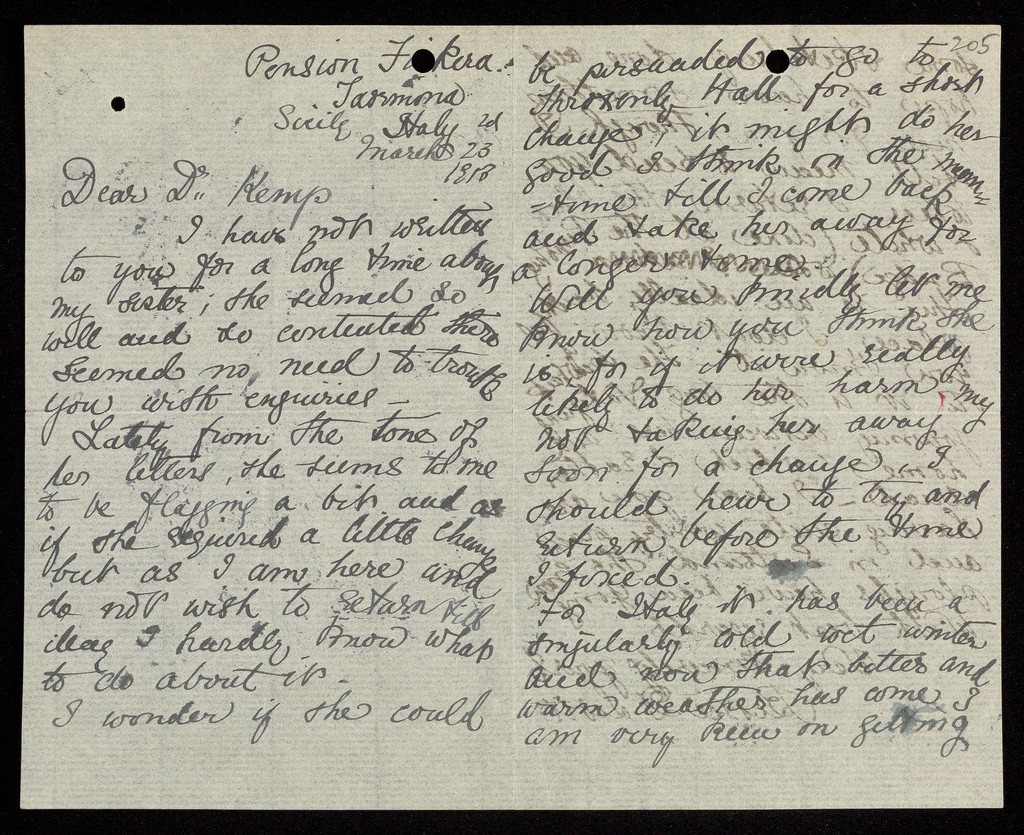 Pension
Taormina
Sicily Italy
March 23rd
1913
Dear Dr Kemp
I have not written
to you for a long time about
my sister; she seemed so
well and so contented there
seemed no need to trouble
you with enquiries —
Lately from the tone of
her letters, she seems to me
to be flagging a bit and as
if she required a little change
but as I am here and
do not wish to return till
May I hardly know what
to do about it.
I wonder if she could
205
be persuaded to go to
Hall for a short
change, it might do her
good I think in the mean
-time till I come back
and take her away for
a longer time.
Will you kindly let me
know how you think she
is for if it were really
likely to do her harm my
not taking her away
soon for a change, I
should have to try and
return before the time
I fixed.
For Italy it has been a
singularly cold wet winter
and now that better and
warm weather has come I
am very keen on getting